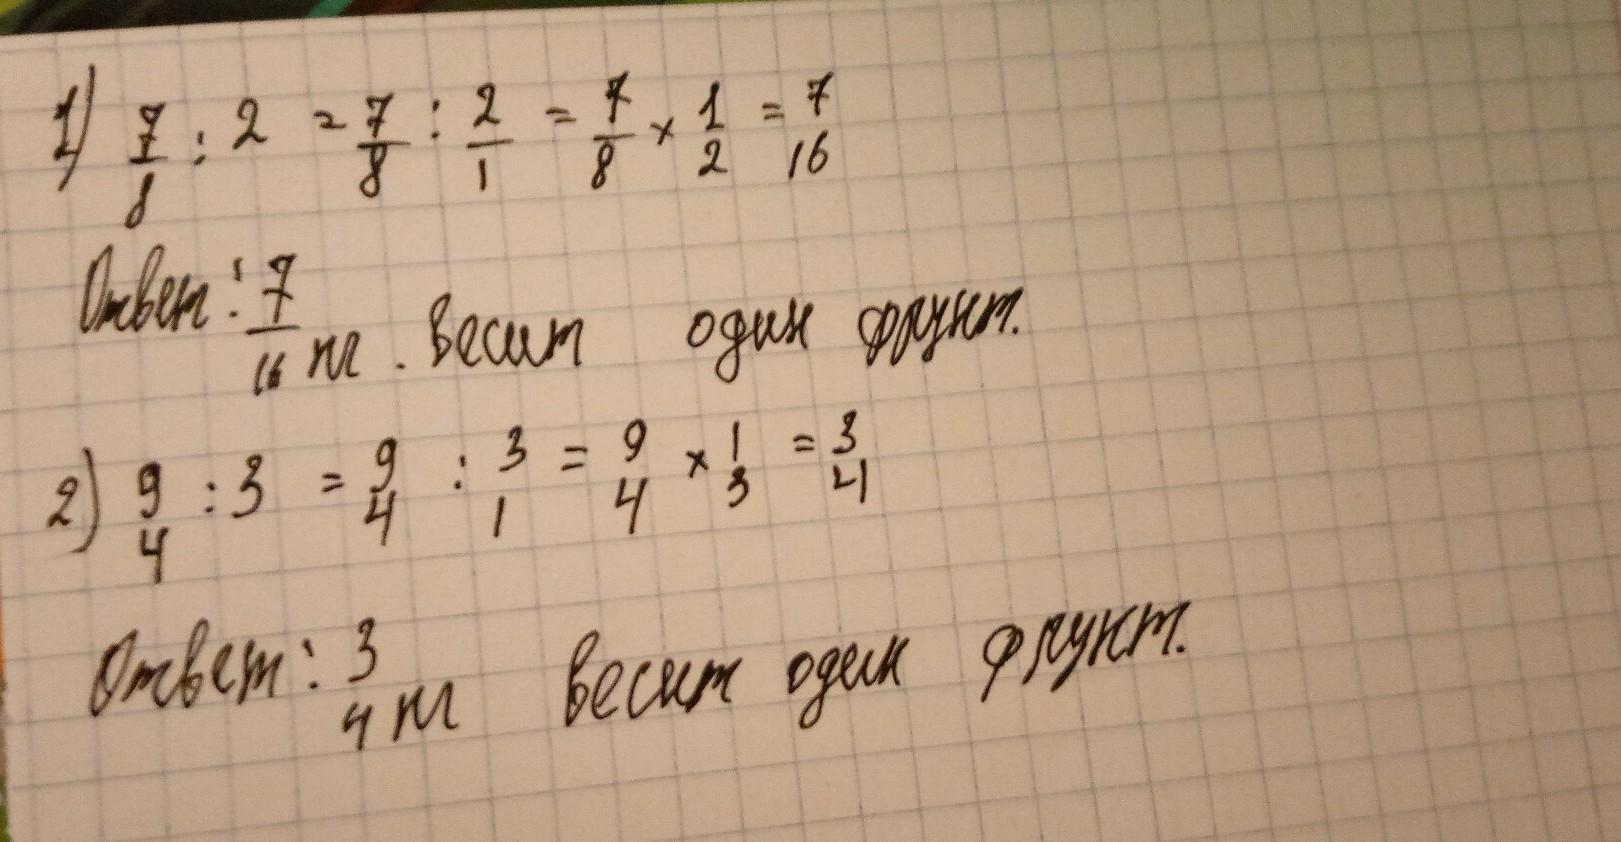 1) 7/8 : 2 = 7/8 : 2/1 = 7/8 × 1/2 = 7/16
Ответ: 7/16 кг. весит один фрукт.
2) 9/4 : 3 = 9/4 : 3/1 = 9/4 × 1/3 = 3/4
Ответ: 3/4 кг весит один фрукт.